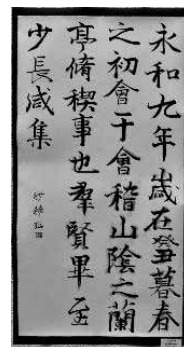 永和九年歲在癸暮春
之初會于會稽山陰之蘭
亭脩稧事也羣賢畢至
少長咸集